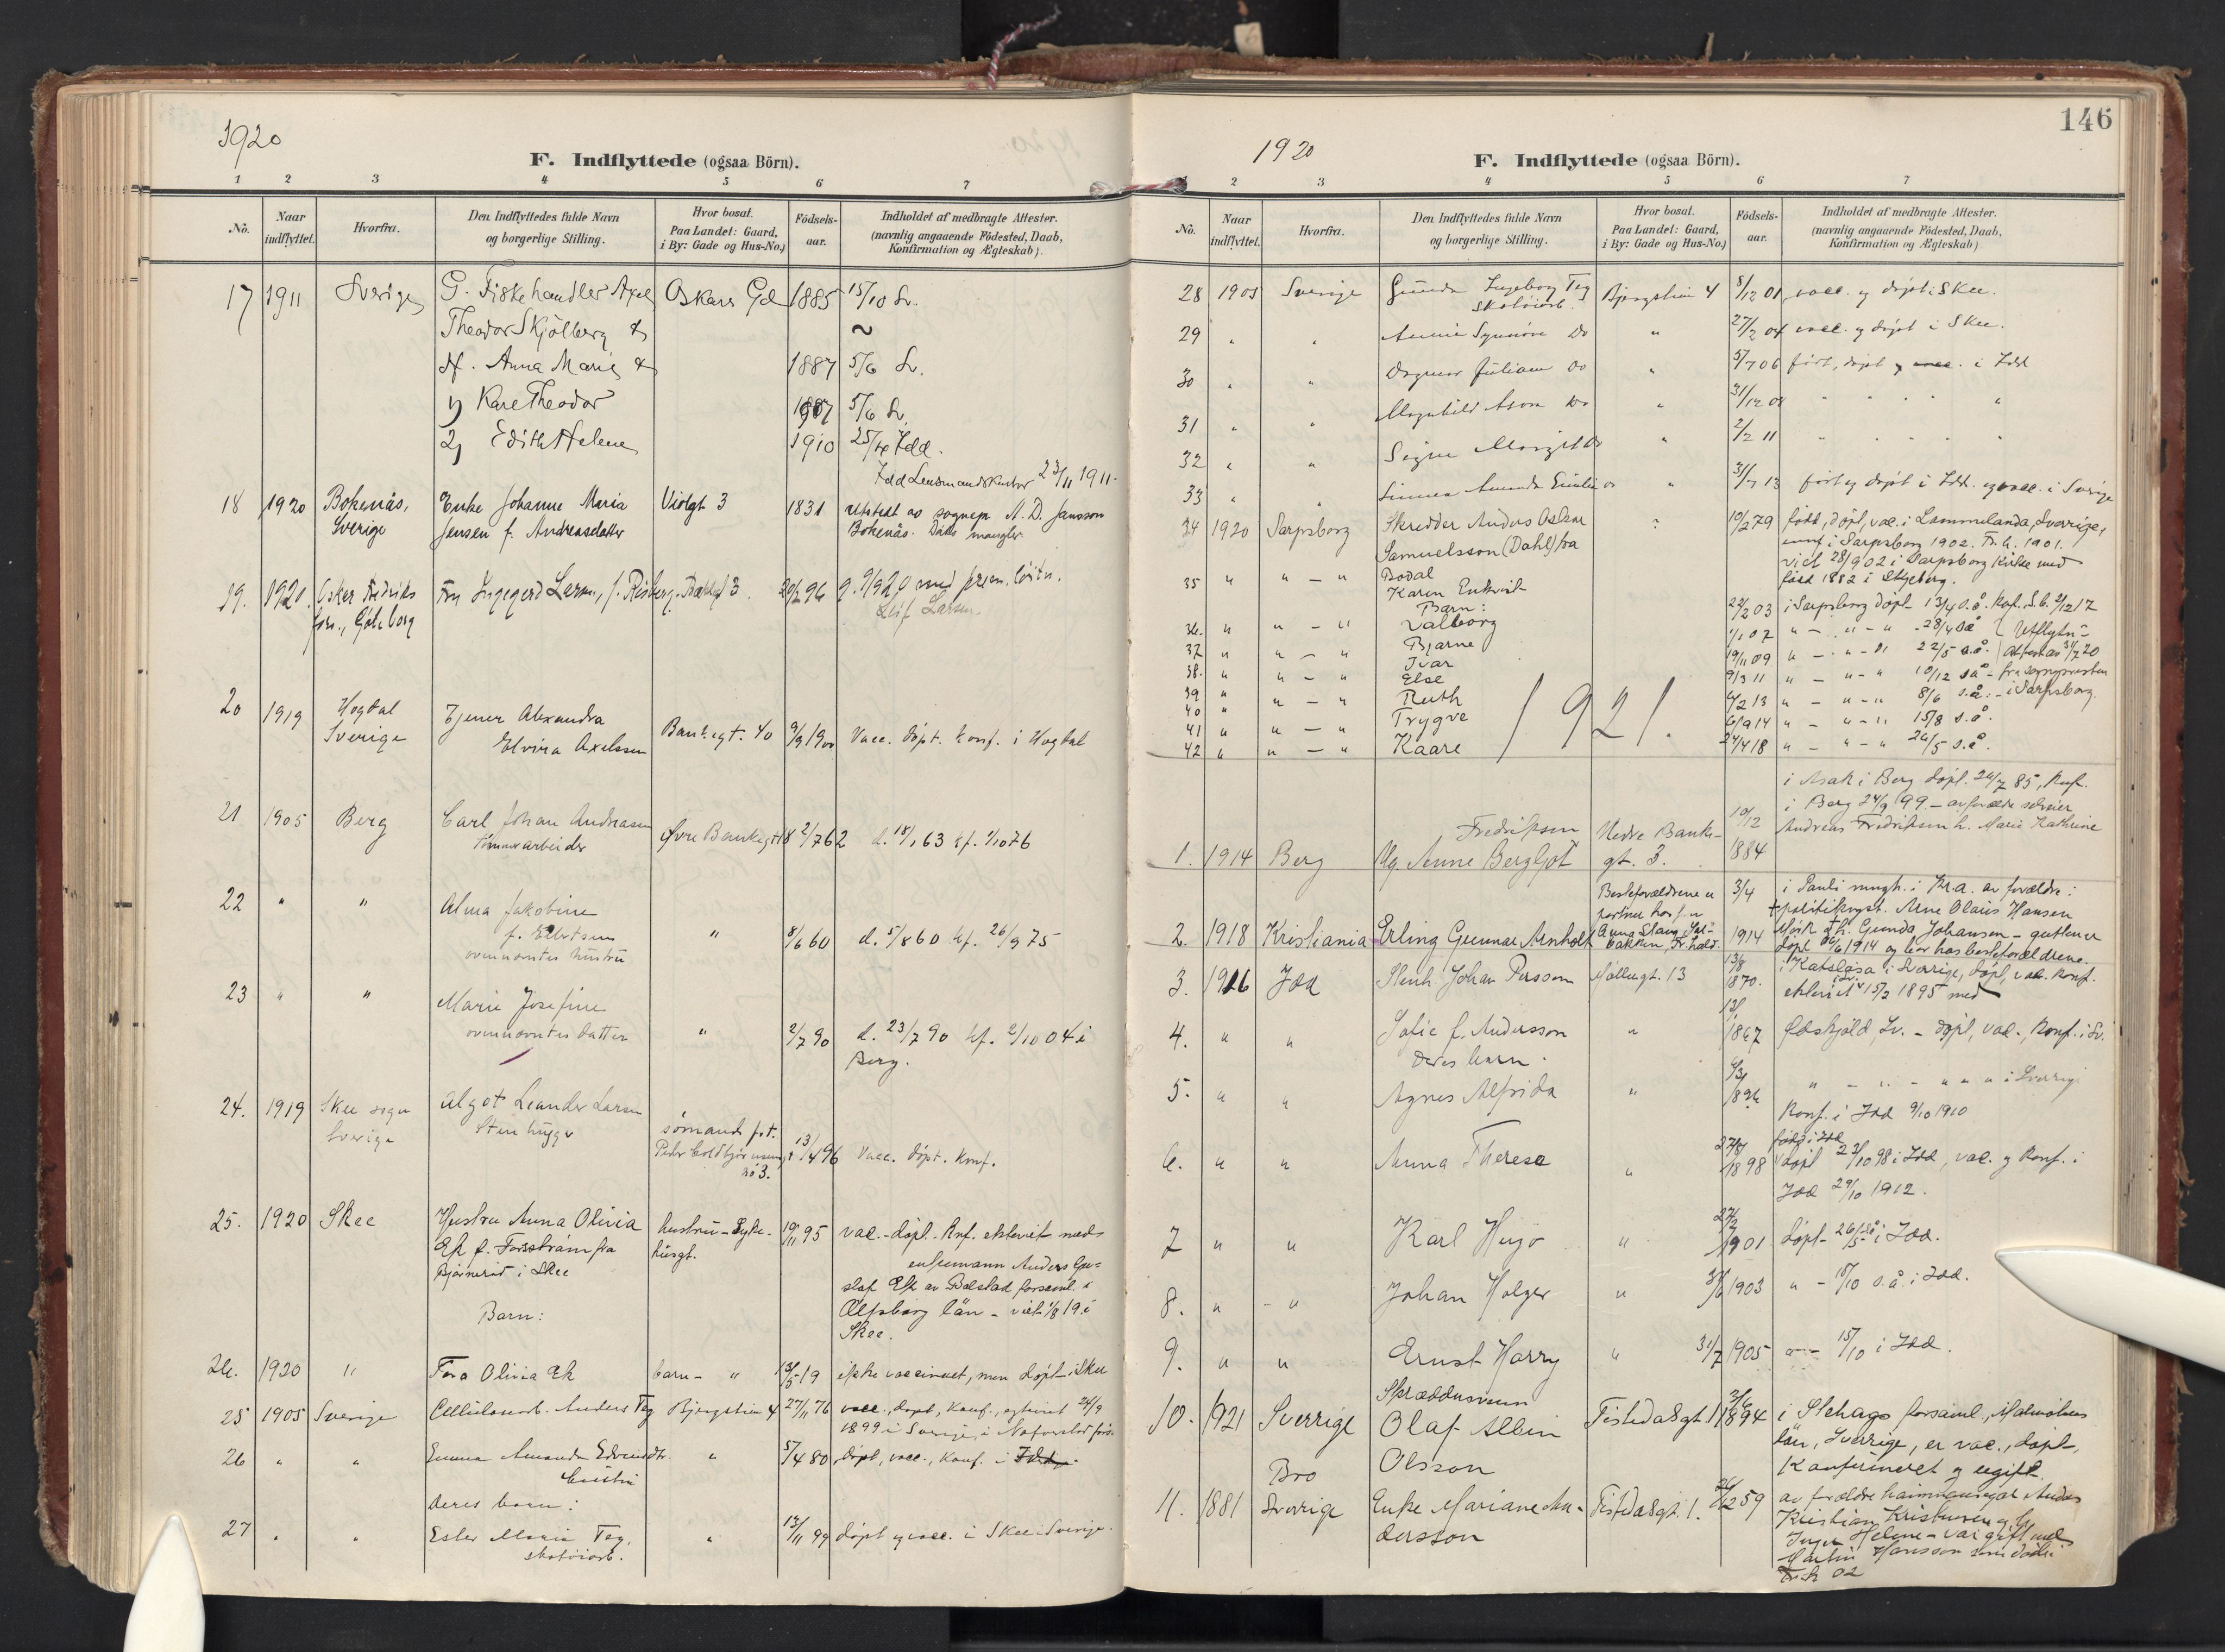 1920
F. Indflyttede (ogsaa Börn).
1 2 3 4 5 6 7
No. Naar indflyttet. Hvorfra. Den Indflyttedes fulde Navn og borgerlige Stilling. Hvor bosat. Paa Landet: Gaard, i By: Gade og Hus-No.) Födselsaar. Indholdet af medbragte Attester. (navnlig angaaende Födested, Daab, Konfirmation og Ægteskab).
17 1911 Sverige G. Fiskehandler Axel Oskars Gd 1885 15/10 Sv.
Theodor Skjölberg &
Hf. Anna Marie & 1887 5/6 Sv.
1) Kare Theodor 1907 5/6 Sv.
2) Edith Helene 1910 25/4 Idd.
Idd Lensmandskontor 23/11 1911.
18 1920 Bokenäs, Enke Johanne Maria Violgt 3 1831 utstedt av sognepr. A. D. Jansson
Sverige Jensen f. Andreasdatter Bokenäs. Data mangler
19. 1920. Oskar Fredriks Fru Ingegerd Larsen, f. Risberg. 3. 96 g. 9/920 med prem. löitn.
förs., Göteborg Leif Larsen.
20 1919 Hogdal Tjener Alexandra Bankegt. 40 9/9 1900 Vacc. döpt. konf. i Hogdal
Sverige Elvira Axelssen
21 1905 Berg Carl Johan Andreasen Øvre Bankegt 18 2/762 d. 18/1 63 kf. 1/10 76
Tömmerarbeider
22 " " Alma Jakobine
f. Elbertsen " 8/6 60 d. 5/8 60 kf. 26/9 75
ovennevntes hustru
23 " " Marie Josefine
ovennevntes datter " 2/7 90 d. 23/7 90 kf. 2/10 04 i
Berg.
24. 1919 Skee sogn Algot Leander Larsen sömand fot.
Sverige Stenhugger Peder Coldbjörnsens 13/4 96 Vacc. döpt. konf.
no 3.
25. 1920 Skee Hustru Anna Olivia hustru - Syke- 19/11 95 vac. - döpt. Knf. ektevit med
Ek f. Forsström fra husgt.
Björneröd i Skee Anders Gu-
staf Ek av Bolstad forsaml. i
Elfsborg län - viet 1/8 19 i
Barn: Skee.
26. 1920 " Tora Olivia Ek barn - " 13/5 19 ikke vaccineret, men döpt i Skee
25 1905 Sverige Cellulosearb. Anders Teg Bjergstien 4 27/11 76 vacc., döpt, konf., egteviet 24/9
1899 i Sverige, i
26 " " Emma Amanda Edvindtr. " 5/4 80 döpt, vacc., konf. i Idd.
hustru
deres barn:
27 " " Ester Maria Teg, " 13/11 99 döpt og vacc. i Skee i Sverige.
skotöiarb.
146
1920
F. Indflyttede (ogsaa Börn).
1 2 3 4 5 6 7
No. Naar indflyttet. Hvorfra. Den Indflyttedes fulde Navn og borgerlige Stilling. Hvor bosat. Paa Landet: Gaard, i By: Gade og Hus-No.) Födselsaar. Indholdet af medbragte Attester. (navnlig angaaende Födested, Daab, Konfirmation og Ægteskab)
28 1905 Sverige Gunda Ingeborg Teg Bjergstien 4 8/12 01 vacc. og döpt i Skee.
skotöiarb.
29 " " Annie Synnöve Do " 27/2 04 vacc. og döpt i Skee.
30 " " Dagmar Juliane Do " 5/7 06 fört, döpt og vacc. i Idd
31 " " Magnhild Asora Do " 31/12 08 " " " "
32 " " Signe Margit Do " 2/2 11 " " " "
33 " " Linnea Amanda Emilie Do " 31/7 13 født og döpt i Idd. og vacc. i Sverige
34 1920 Sarpsborg Skredder Anders Oskar " 10/2 79 född, döpt, vac. i Lommelanda, Sverrige,
Samuelsson (Dahl) fra i Sarpsborg 1902. Fr.h. 1901.
Bodal viet 28/9 02 i Sarpsborg Kirke med
35 " " - " Karen Enkvist född 1882 i Skjeberg.
Barn:
36. " " - " Valborg 22/2 03 i Sarpsborg döpt 13/4 s.å. Konf. S.b. 2/12 17
37 " " - " Bjarne 1/1 07 " - " - " - 28/4 s.å Utflytn.-
38. " " - " Ivar 19/11 09 " - " - " 22/5 s.å. attester 31/7 20
39 " " - " Else 9/3 11 " - " - " 10/12 så - fra sognepresten
40 " " - " Ruth 4/2 13 " - " - " 8/6 s.å. - i Sarpsborg.
41 " " - " Trygve 6/9 14 " - " - " 15/8 s.å.
42 " " - " Kaare 24/4 18 " - " - " 26/5 s.å.
1921.
i Asak i Berg döpt 24/7 85, Knf.
i Berg 24/9 99 - av forældre selveier
Fredriksen Nedre Banke- 10/12 Andreas Fredriksen h. Marie Kathrine
1. 1914 Berg Ug. Anne Bergljot gt. 3. 1884
Besteforældrene 3/4 i Pauli mngh. i Kr.a. av forældre:
+politikonst. Arne Olaus Hansen
2. 1918 Kristiania Erling Gunnar Arnholt Anna Stang 1914 Mörk & h. Gunda Johansen - gutten er
bakken, Fr.hald. döpt 1914 og bor hos besteforældrene.
3. 1916 Idd Stenh. Johan Persson Möllergt. 13 13/8 1870. i Katslösa i Sverrige, döpt, vac. konf.
ekteviet 15/2 1895 med
4. " " Sofie f. Andersson " 1867 Ödskjöld, Sv. - döpt, vac., konf. i Sv.
deres barn.
5. " " Agnes Alfrida " 6/3 1896 " - " - " " " i Sverrig
Konf. i Idd 9/10 1910
6. " " Anna Therese " 27/8 1898 född i Idd döpt 23/10 98 i Idd, vac. og konf. i
Idd 29/10 1912.
7 " " Karl Hugo " 27/2 1901 döpt 26/5 så i Idd.
8. " " Johan Holger " 3/6 1903 " - 18/10 s.å. i Idd.
9. " " Ernst Harry " 31/7 1905 " - 15/10 i Idd.
Skræddersvenn
10. 1921 Sverrige Olaf Albin Tistedalsgt. 1 1894 i Stehags forsaml., Malmöhus
Olsson län, Sverrige, er vac., döpt,
Konfirmeret og ugift.
Bro
11. 1881 Sverrige Enke Mariane An- Tistedalsgt. 1. 59 av forældre
dersson Kristian Kristensen og h.
Inger Helene - var gift med
Martin Hansson som döde i
Fr.h 02